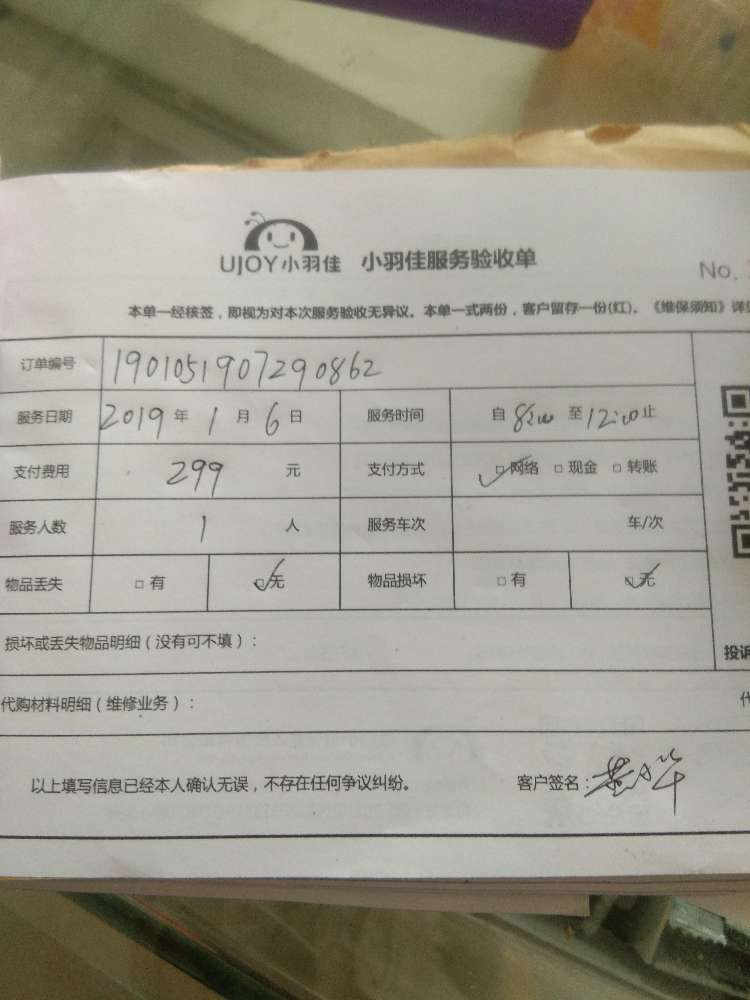 UJOY小羽佳 小羽佳服务验收单
No.
本单一经核签，即视为对本次服务验收无异议。本单一式两份，客户留存一份(红)。《维保须知》详
订单编号 1901051907290862
服务日期 2019年1月6日 服务时间 自8:00至12:00止
支付费用 299元 支付方式 ☑网络 □现金 □转账
服务人数 1人 服务车次 车/次
物品丢失 □有 ☑无 物品损坏 □有 ☑无
损坏或丢失物品明细（没有可不填）：
投诉
代购材料明细（维修业务）：
以上填写信息已经本人确认无误，不存在任何争议纠纷。 客户签名：